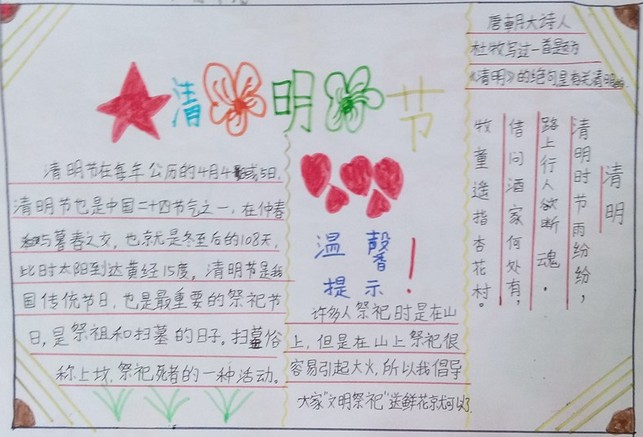 清明节
清明节在每年公历的4月4或5日.
清明节也是中国二十四节气之一,在仲春
和与暮春之交,也就是冬至后的108天,
此时太阳到达黄经15度,清明节是我
国传统节日,也是最重要的祭祀节
日,是祭祖和扫墓的日子,扫墓俗
称上坟,祭祀死者的一种活动。
温馨
提示!
许多人祭祀时是在山
上,但是在山上祭祀很
容易引起大火,所以我倡导
大家"文明祭祀"送鲜花就可以了.
唐朝大诗人
杜牧写过一首题为
《清明》的绝句是有关清明
清明
清明时节雨纷纷,
路上行人欲断魂,
借问酒家何处有,
牧童遥指杏花村。